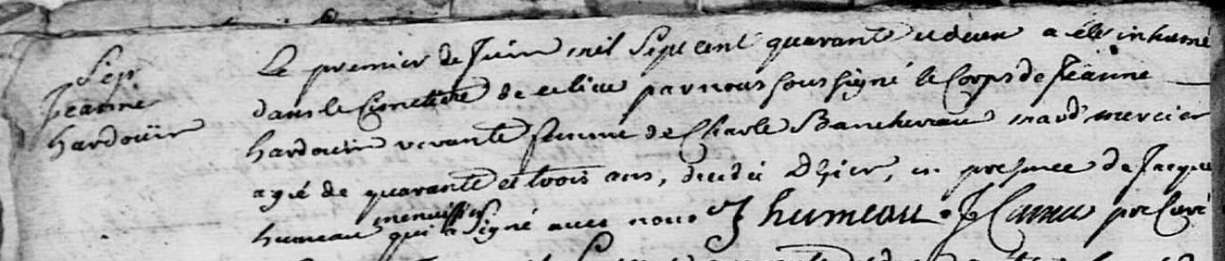 Sep
Jeanne
hardoüin
Le premier de Juin mil sept cent quarante et deux a été inhumé
dans le Cimetiere de ce lieu par nous soussigné le Corps de Jeanne
hardouin vivante femme de Charle Banchereau mard mercier
agé de quarante et trois ans, decedé D'hier, en presence de Jacque
menuisier
humeau qui a signé avec nous J humeau